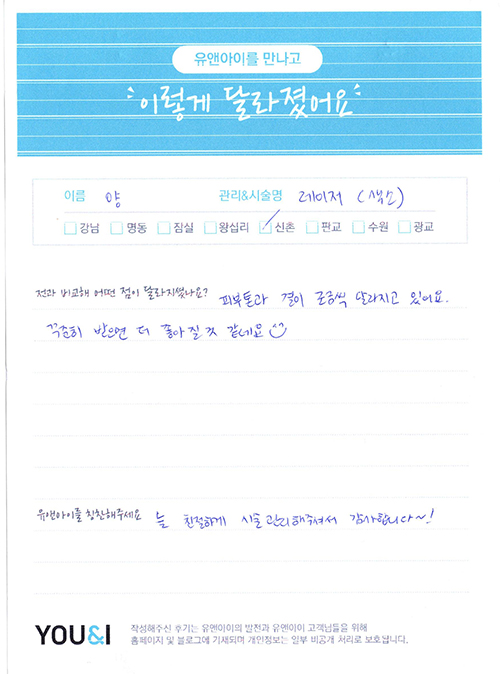 유앤아이를 만나고
이렇게 달라졌어요
이름 양 관리&시술명 레이저 (색소)
강남 명동 잠실 왕십리 신촌 판교 수원 광교
전과 비교해 어떤 점이 달라지셨나요? 피부톤과 결이 조금씩 달라지고 있어요.
꾸준히 받으면 더 좋아질 것 같네요
유앤아이를 칭찬해주세요 늘 친절하게 시술 관리해주셔서 감사합니다~!
YOU&I 작성해주신 후기는 유앤아이의 발전과 유앤아이 고객님들을 위해
홈페이지 및 블로그에 기재되며 개인정보는 일부 비공개 처리로 보호됩니다.